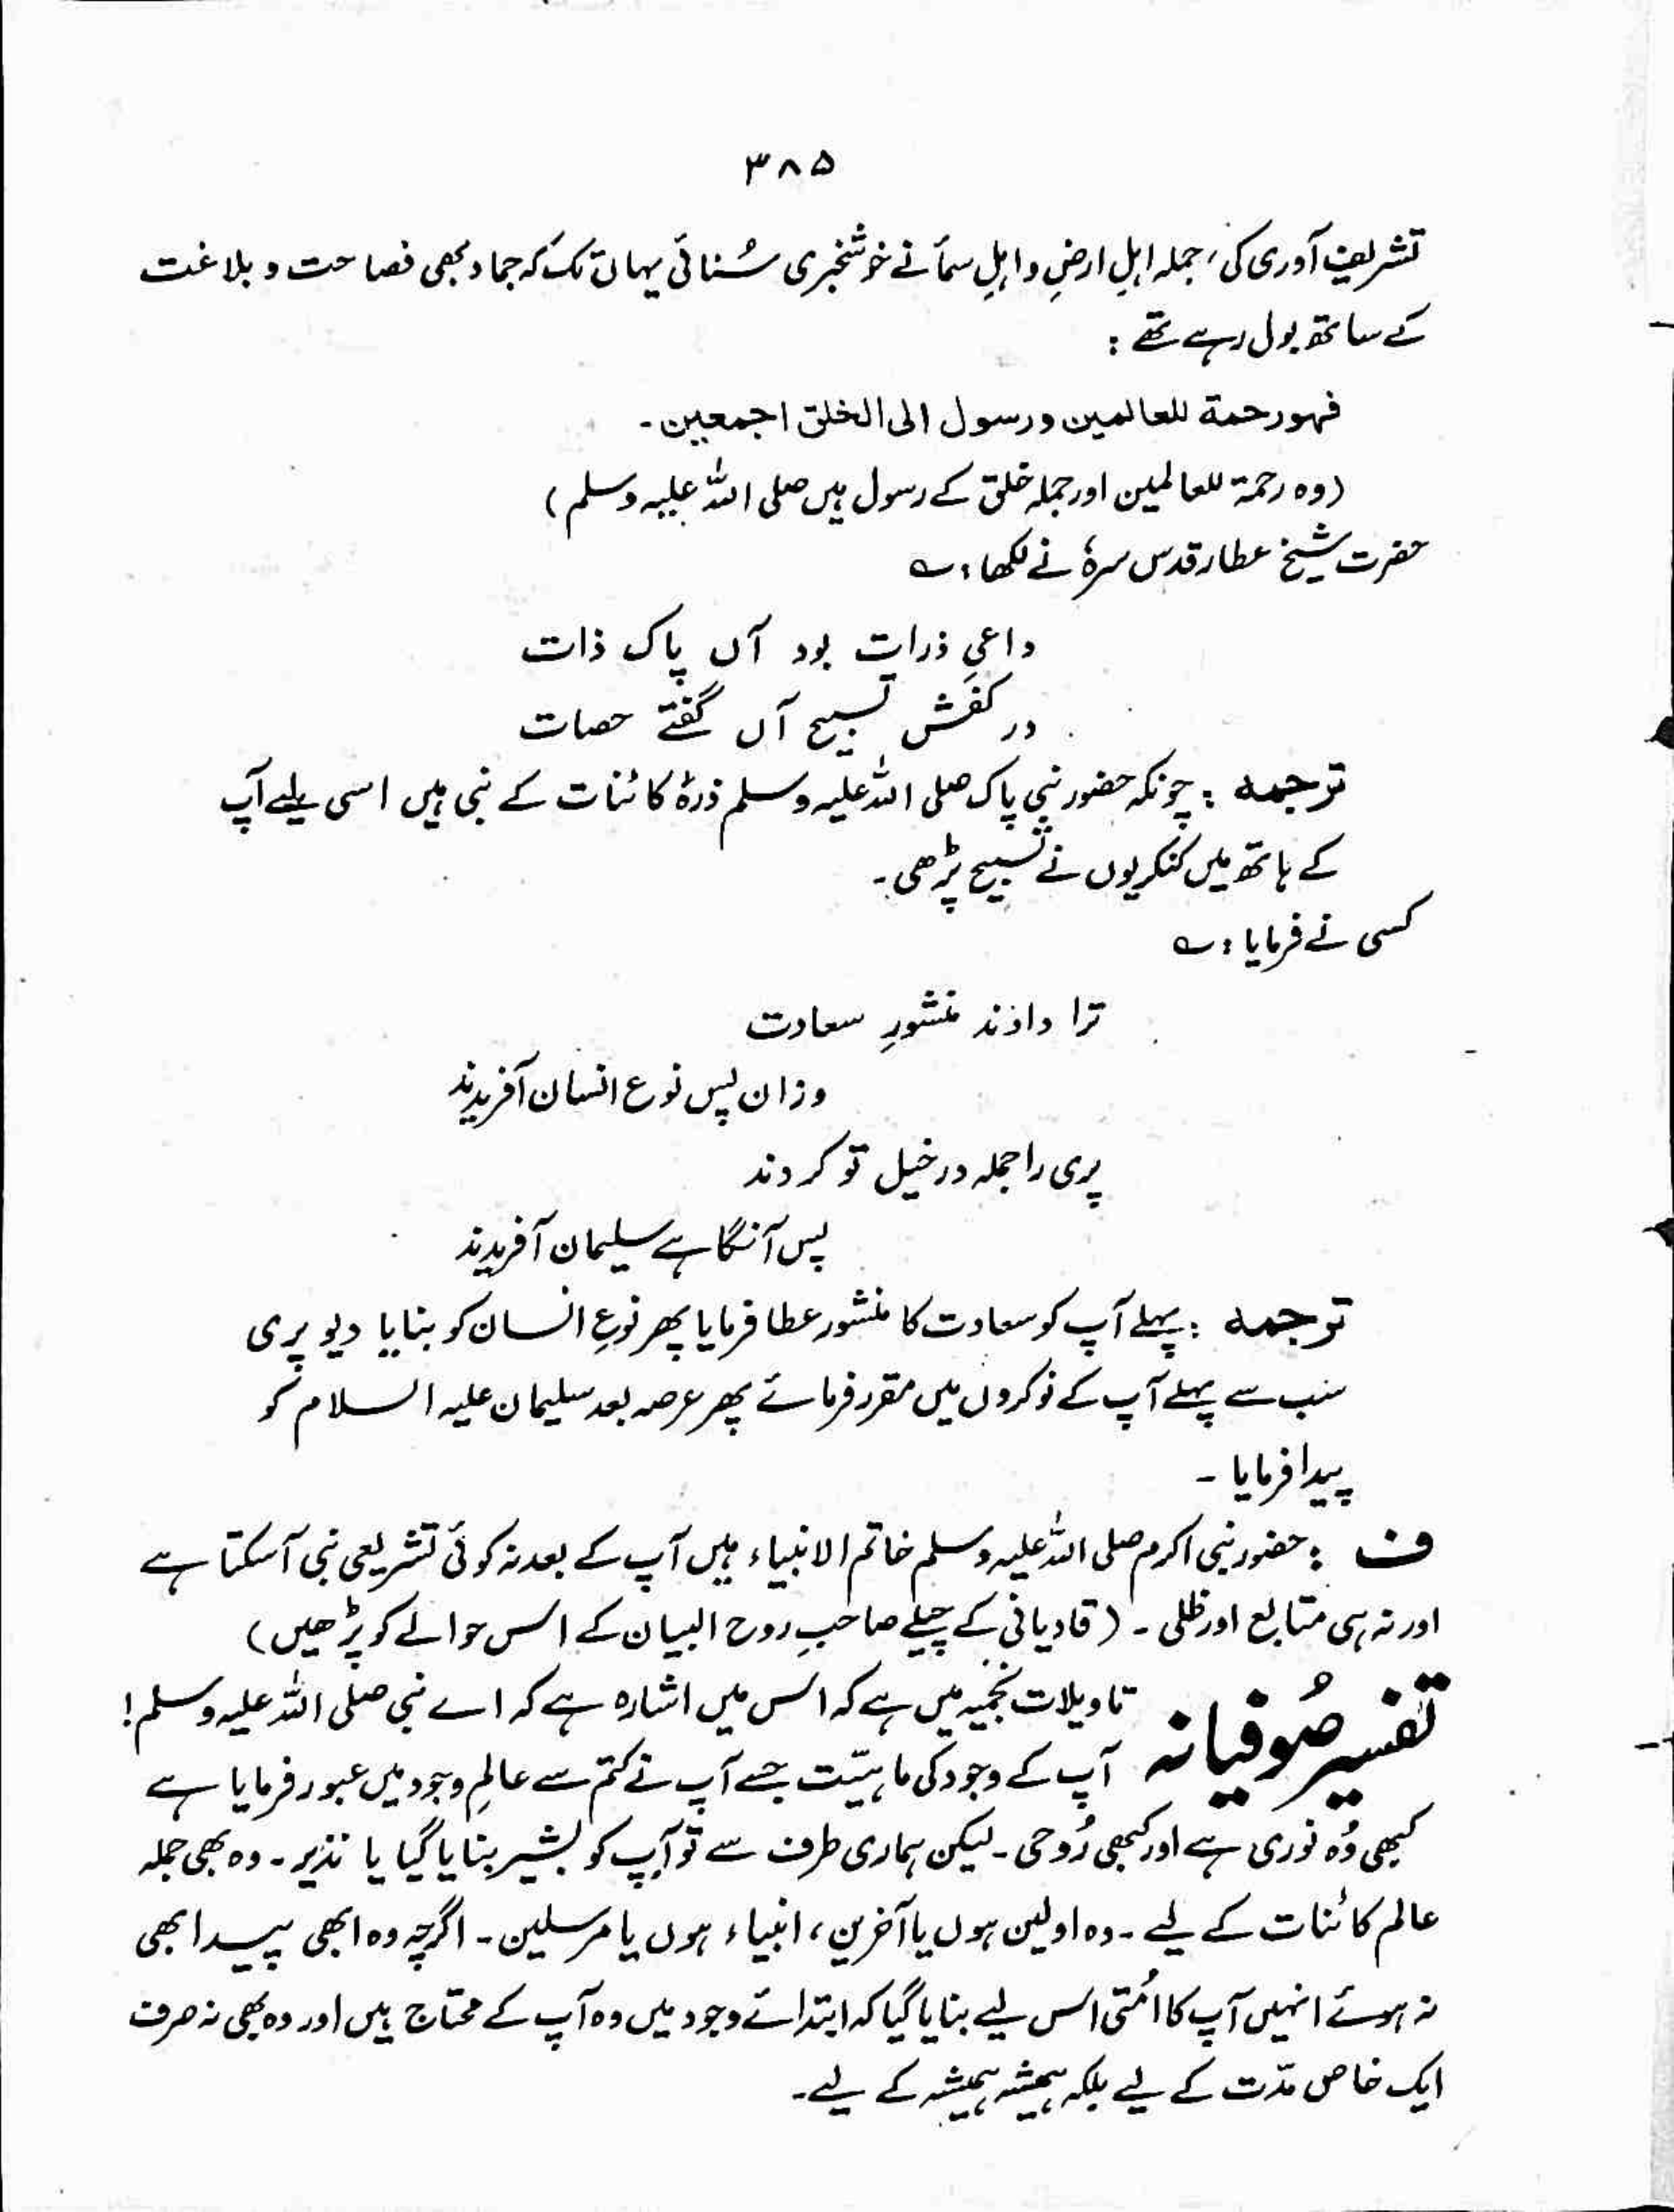 ۳۸۵
تشریف آوری کی، جملہ اہلِ ارض و اہلِ سمأ نے خوشخبری سُنائی یہاں تک کہ جماد بھی فصاحت و بلاغت
کے ساتھ بول رہے تھے :
فہو رحمة للعالمین و رسول الی الخلق اجمعین ۔
(وہ رحمۃ للعالمین اور جملہ خلق کے رسول ہیں صلی اللہ علیہ وسلم)
حضرت شیخ عطار قدس سرہٗ نے لکھا : ؎
داعیِ ذرات بود آں پاک ذات
در کفش تسبیح آں گفتے حصات
ترجمہ : چونکہ حضور نبی پاک صلی اللہ علیہ وسلم ذرۂ کائنات کے نبی ہیں اسی لیے آپ
کے ہاتھ میں کنکریوں نے تسبیح پڑھی ۔
کسی نے فرمایا : ؎
ترا دادند منشورِ سعادت
وزان پس نوع انسان آفریدند
پری را جملہ در خیل تو کردند
پس آنگاہے سلیمان آفریدند
ترجمہ : پہلے آپ کو سعادت کا منشور عطا فرمایا پھر نوعِ انسان کو بنایا دیو پری
سب سے پہلے آپ کے نوکروں میں مقرر فرمائے پھر عرصہ بعد سلیمان علیہ السلام کو
پیدا فرمایا ۔
ف : حضور نبی اکرم صلی اللہ علیہ وسلم خاتم الانبیاء ہیں آپ کے بعد نہ کوئی تشریعی نبی آسکتا ہے
اور نہ ہی متابع اور ظلی ۔ (قادیانی کے چیلے صاحبِ روح البیان کے اس حوالے کو پڑھیں)
تفسیر صُوفیانہ تاویلات نجمیہ میں ہے کہ اس میں اشارہ ہے کہ اے نبی صلی اللہ علیہ وسلم!
آپ کے وجود کی ماہیّت جسے آپ نے کتم سے عالمِ وجود میں عبور فرمایا ہے
کبھی وُہ نوری ہے اور کبھی رُوحی ۔ لیکن ہماری طرف سے تو آپ کو بشیر بنایا گیا یا نذیر ۔ وہ بھی جملہ
عالم کائنات کے لیے ۔ وہ اولین ہوں یا آخرین، انبیاء ہوں یا مرسلین ۔ اگرچہ وہ ابھی پیدا بھی
نہ ہوئے انہیں آپ کا اُمتی اس لیے بنایا گیا کہ ابتدائے وجود میں وہ آپ کے محتاج ہیں اور وہ بھی نہ صرف
ایک خاص مدّت کے لیے بلکہ ہمیشہ ہمیشہ کے لیے ۔